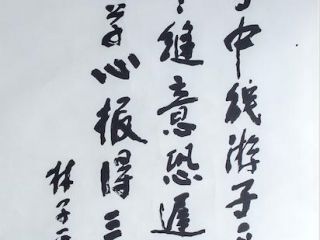 中线游子
缝意恐遲
草心报得三
林子